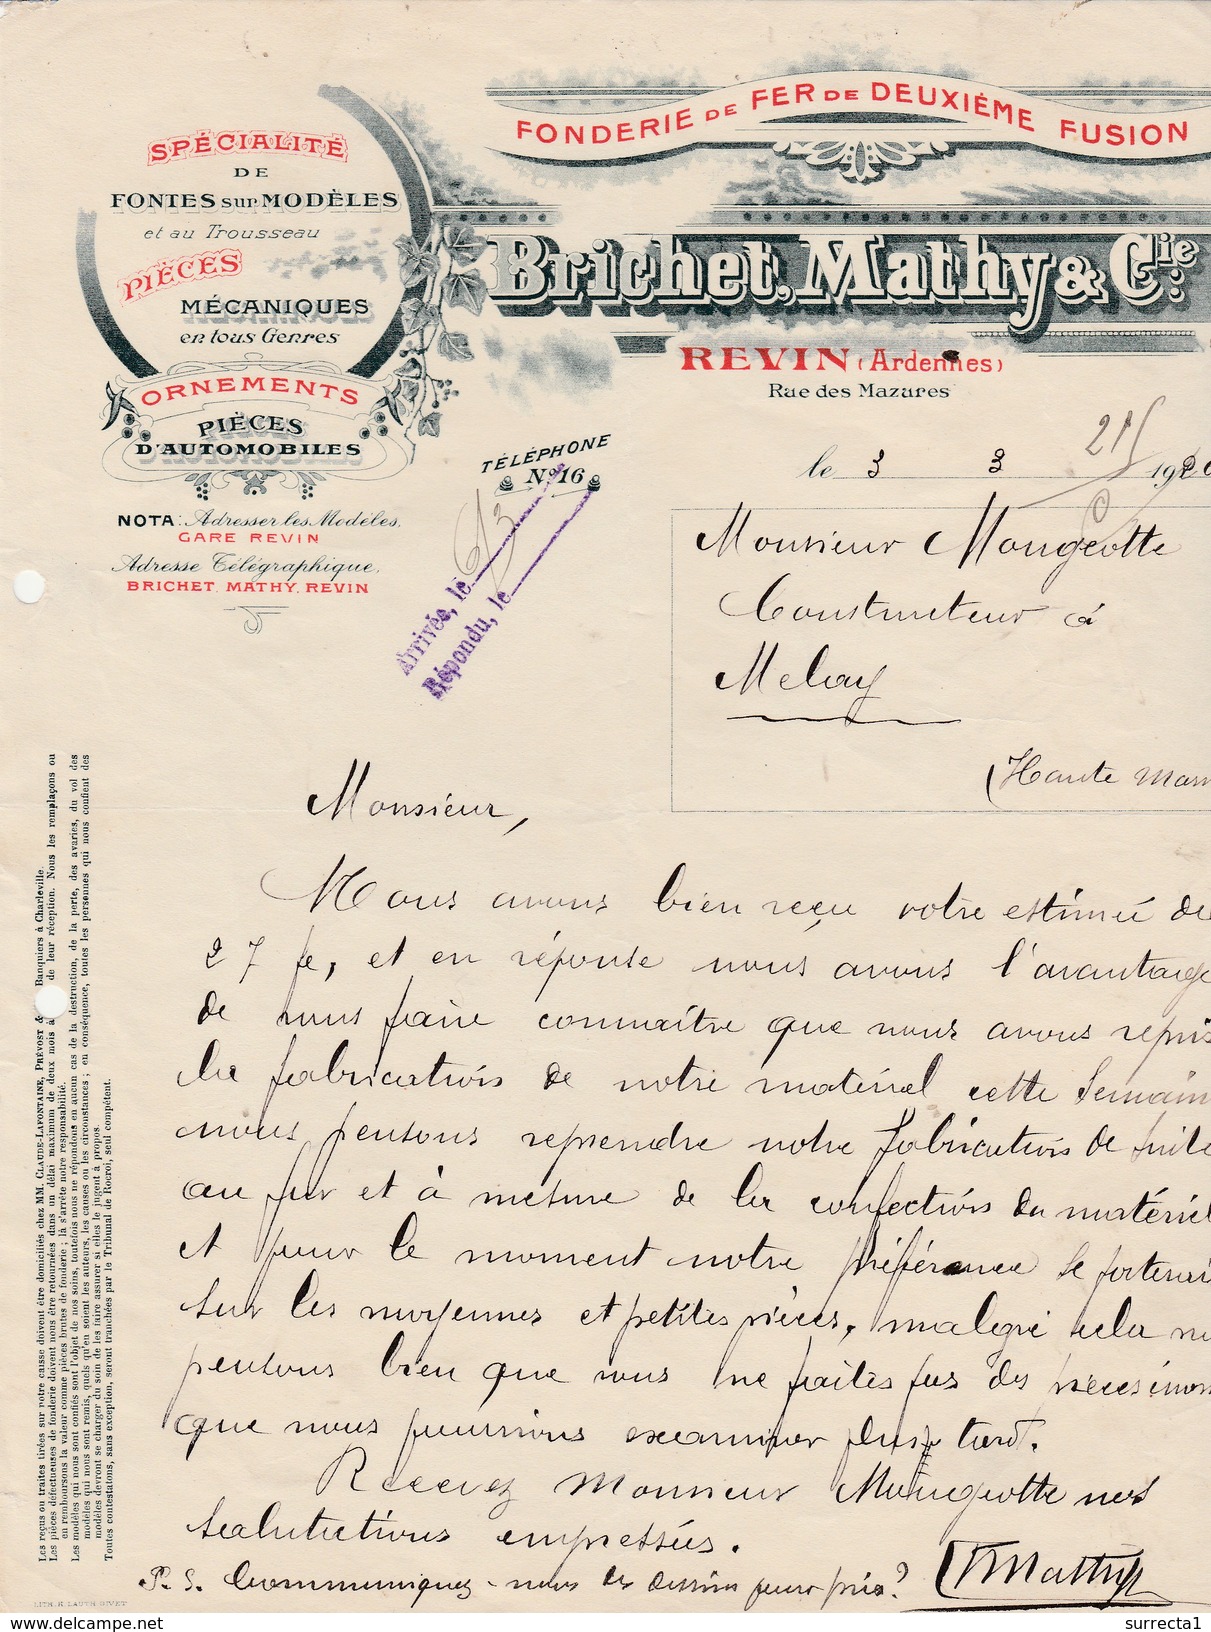 FONDERIE DE FER DE DEUXIÈME FUSION
SPÉCIALITÉ
DE
FONTES SUR MODÈLES
et au Trousseau
PIÈCES
MÉCANIQUES
en tous Genres
ORNEMENTS
PIÈCES
D'AUTOMOBILES
NOTA: Adresser les Modèles,
GARE REVIN
Adresse Télégraphique,
BRICHET. MATHY. REVIN
Brichet, Mathy & Cie
REVIN (Ardennes)
Rue des Mazures
TÉLÉPHONE
No 16
Arrivée, le 6/3
Répondu, le
le 3 3 1920
Monsieur Mougeotte
Constructeur à
Melay
(Haute Marn
Monsieur,
Nous avons bien reçu votre estimée du
27 fe, et en réponse nous avons l'avantage
de vous faire connaître que nous avons repris
la fabrication de notre matériel cette semain
nous pensons reprendre notre fabrication de suite
au fur et à mesure de la confection du matériel
et pour le moment notre préférence se porterai
sur les moyennes et petites pièces, malgré cela no
pensons bien que vous ne faites pas des pièces
que nous pourrions examiner plus tard.
Recevez Monsieur Mougeotte nos
salutations empressées.
P.S. Communiquez-nous des dessins pour prix?
Mathy
Les reçus ou traites tirées sur notre caisse doivent être domiciliés chez MM. CLAUDE-LAFONTAINE, PRÉVOST & Banquiers à Charleville.
Les pièces défectueuses de fonderie doivent nous être retournées dans un délai maximum de deux mois à de leur réception. Nous les remplaçons ou
en remboursons la valeur comme pièces brutes de fonderie; là s'arrête notre responsabilité.
Les modèles qui nous sont confiés sont l'objet de nos soins, toutefois nous ne répondons en aucun cas de la destruction, de la perte, des avaries, du vol des
modèles qui nous sont remis, quels qu'en soient les auteurs, les causes ou les circonstances; en conséquence, toutes les personnes qui nous confient des
modèles devront se charger du soin de les faire assurer si elles le jugent à propos.
Toutes contestatons, sans exception, seront tranchées par le Tribunal de Rocroi, seul compétent.
surrecta1